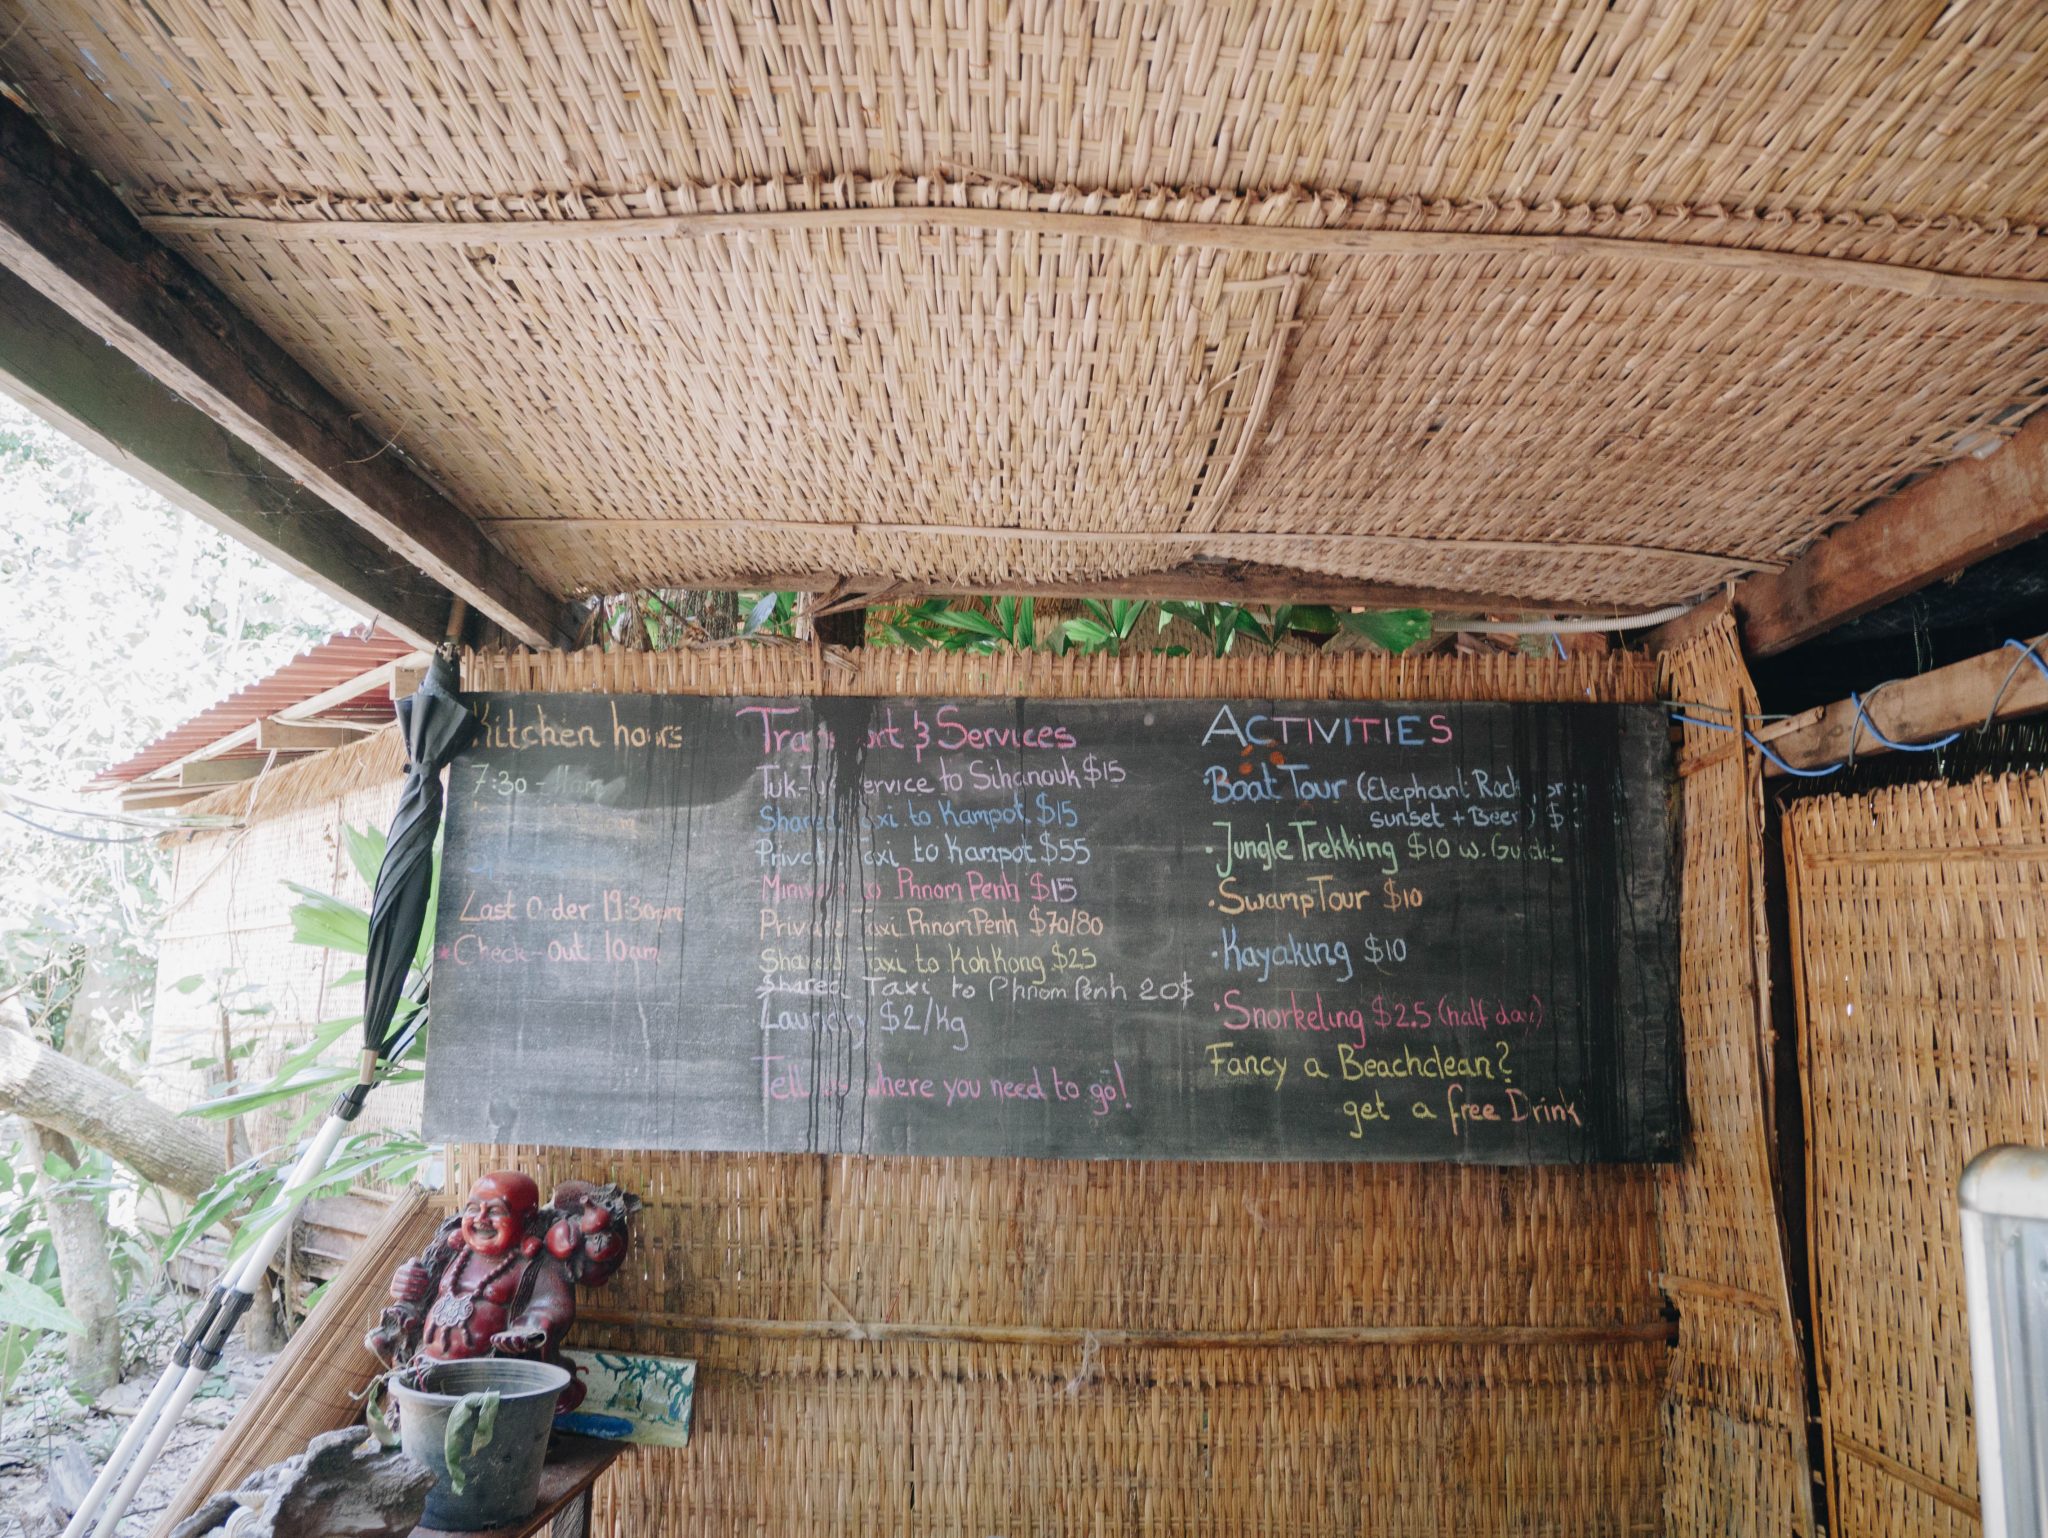 Kitchen hours
7:30 - 11am
Last Order 19:30pm
* Check-out 10am
Transport & Services
Tuk-Tuk service to Sihanouk $15
Shared Taxi to Kampot $15
Private Taxi to Kampot $55
Minivan to Phnom Penh $15
Private Taxi Phnom Penh $70/80
Shared Taxi to Koh Kong $25
Shared Taxi to Phnom Penh 20$
Laundry $2/Kg
Tell us where you need to go!
ACTIVITIES
·Boat Tour (Elephant Rock or
sunset + Beer) $
·Jungle Trekking $10 w. Guide
·Swamp Tour $10
·Kayaking $10
·Snorkeling $2.5 (half day)
Fancy a Beachclean?
get a free Drink